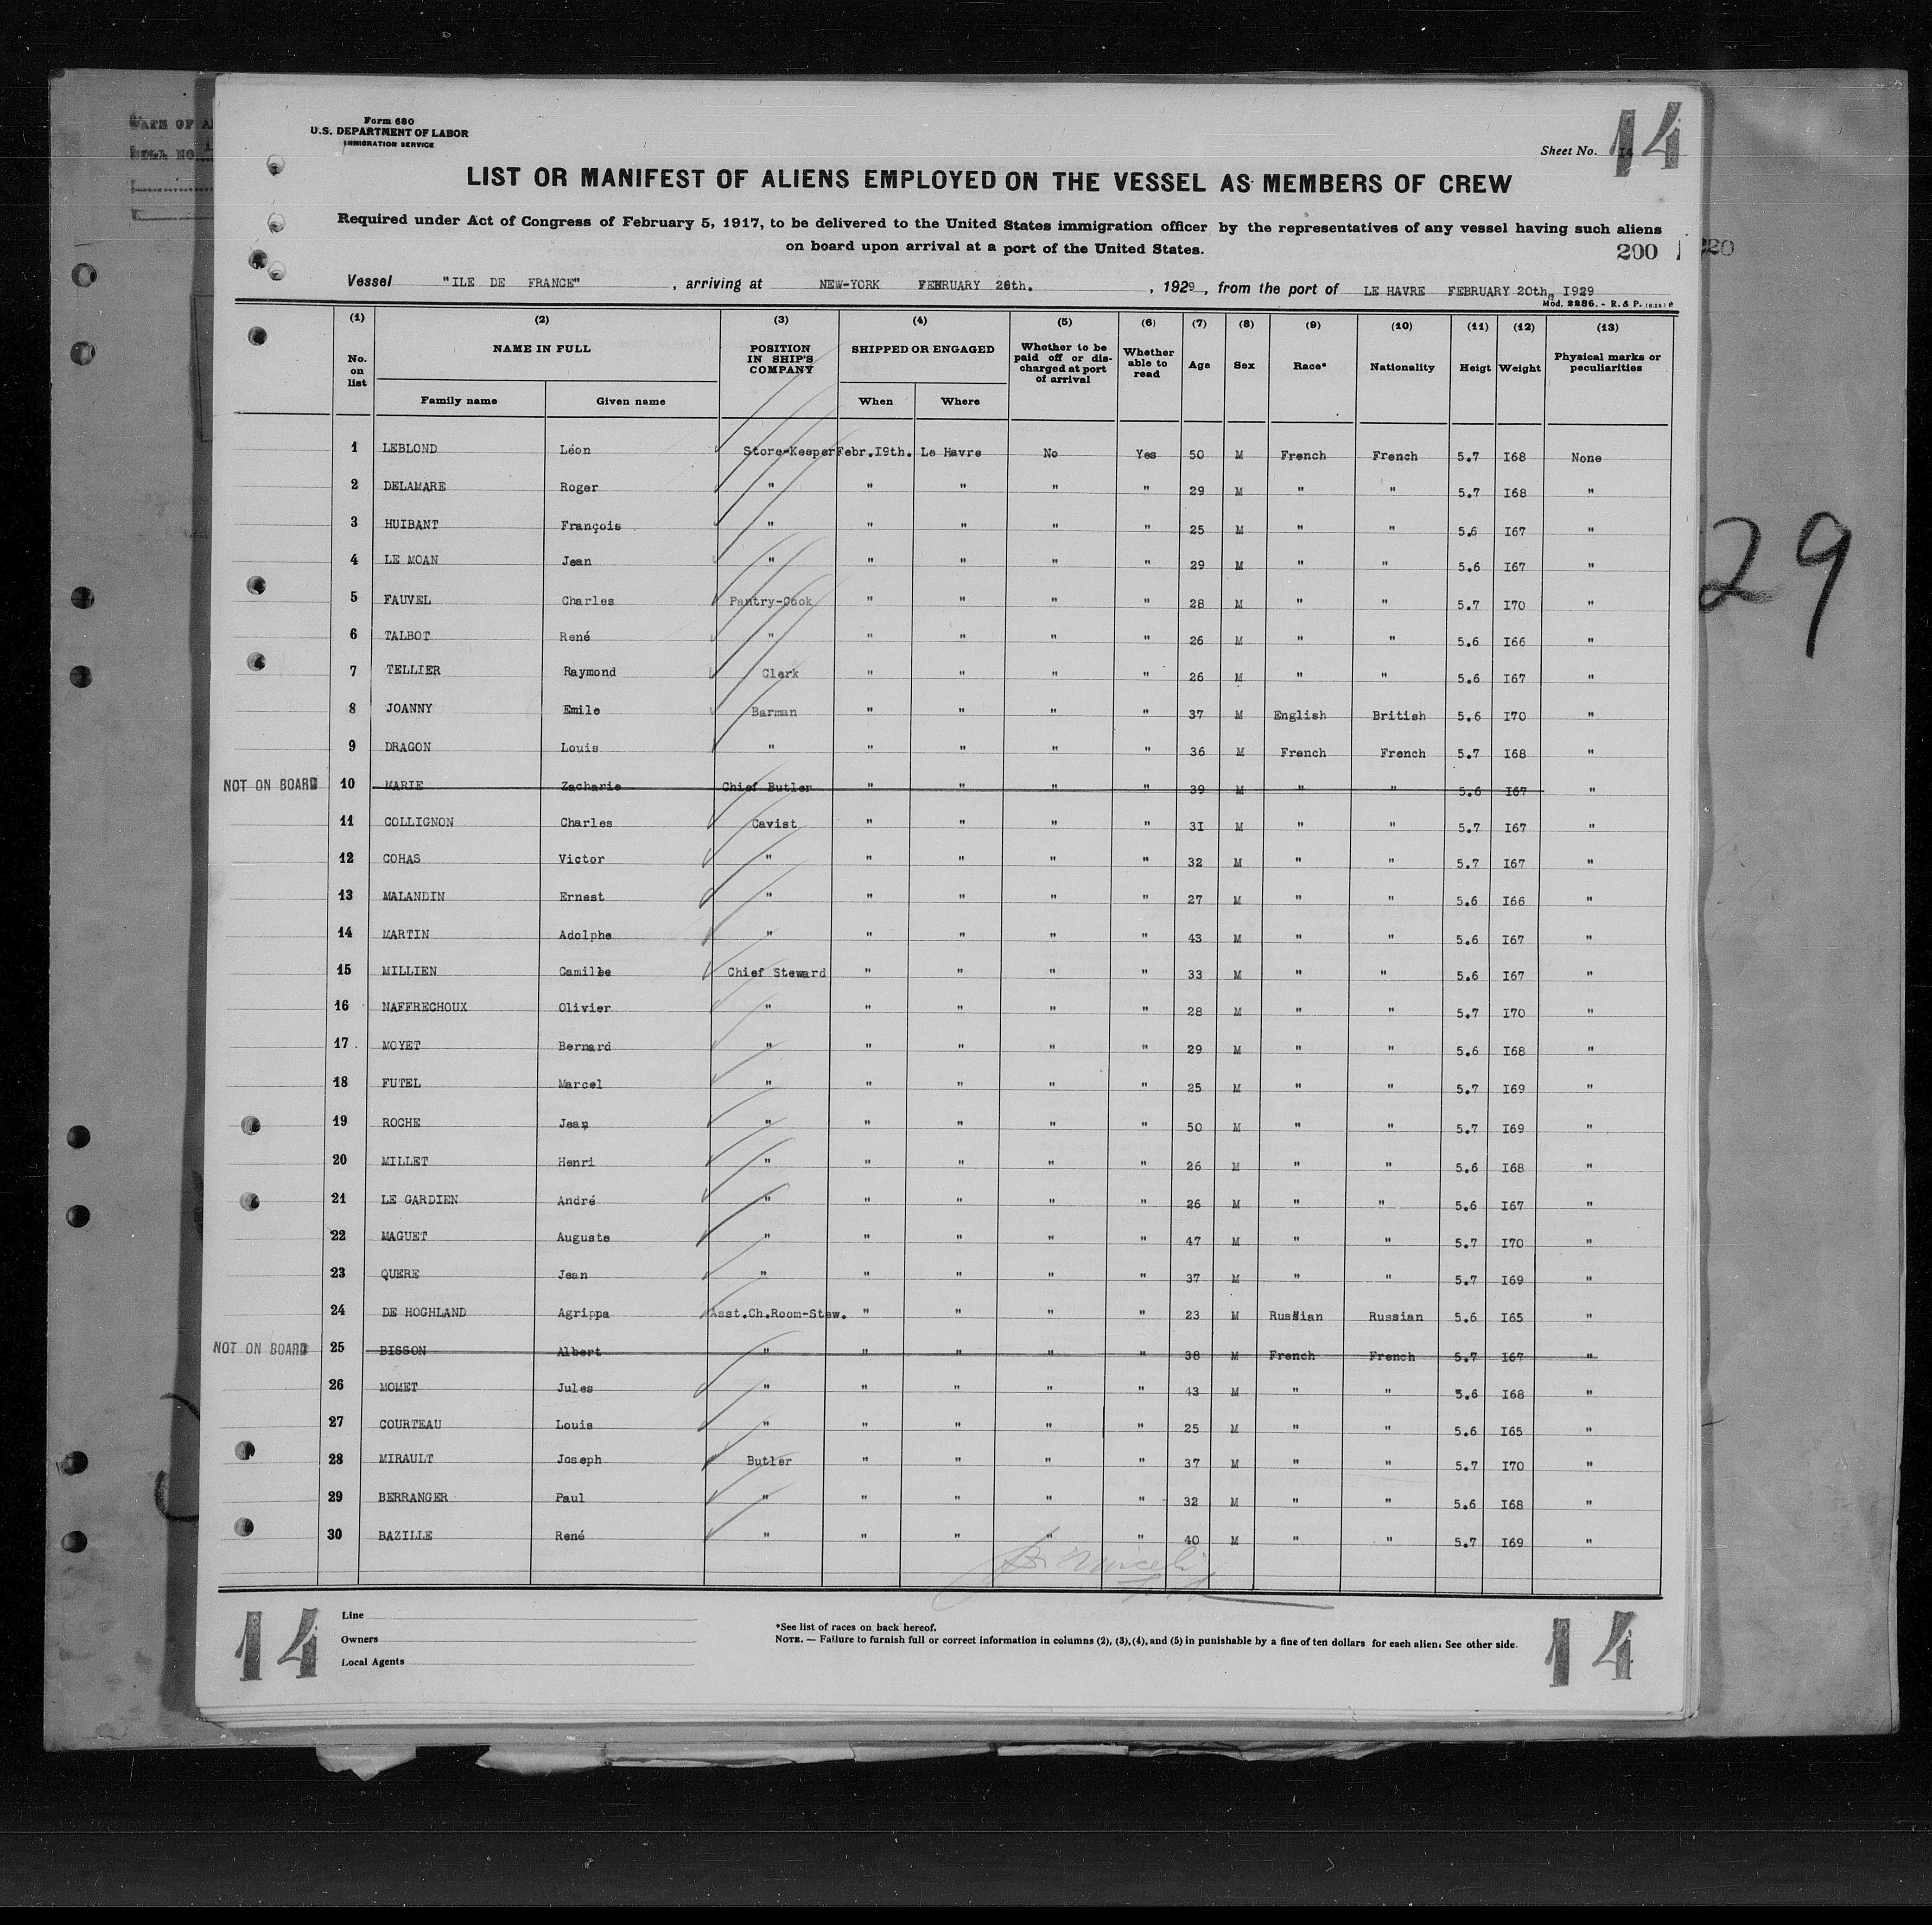 Form 680
U.S. DEPARTMENT OF LABOR
IMMIGRATION SERVICE
Sheet No. 14
14
LIST OR MANIFEST OF ALIENS EMPLOYED ON THE VESSEL AS MEMBERS OF CREW
Required under Act of Congress of February 5, 1917, to be delivered to the United States immigration officer by the representatives of any vessel having such aliens
on board upon arrival at a port of the United States.
200
Vessel "ILE DE FRANCE" , arriving at NEW-YORK FEBRUARY 26th. , 1929 , from the port of LE HAVRE FEBRUARY 20th, I929
Mod. 2286. - R. & P.
(1) (2) (3) (4) (5) (6) (7) (8) (9) (10) (11) (12) (13)
No. on list NAME IN FULL POSITION IN SHIP'S COMPANY SHIPPED OR ENGAGED Whether to be paid off or discharged at port of arrival Whether able to read Age Sex Race* Nationality Heigt Weight Physical marks or peculiarities
Family name Given name When Where
1 LEBLOND Léon Store-Keeper Febr.I9th. Le Havre No Yes 50 M French French 5.7 I68 None
2 DELAMARE Roger " " " " " 29 M " " 5.7 I68 "
3 HUIBANT François " " " " " 25 M " " 5.6 I67 "
4 LE MOAN Jean " " " " " 29 M " " 5.6 I67 "
5 FAUVEL Charles Pantry-Cook " " " " 28 M " " 5.7 I70 "
6 TALBOT René " " " " " 26 M " " 5.6 I66 "
7 TELLIER Raymond Clerk " " " " 26 M " " 5.6 I67 "
8 JOANNY Emile Barman " " " " 37 M English British 5.6 I70 "
9 DRAGON Louis " " " " " 36 M French French 5.7 I68 "
NOT ON BOARD 10 MARIE Zacharie Chief Butler " " " " 39 M " " 5.6 I67 "
11 COLLIGNON Charles Cavist " " " " 3I M " " 5.7 I67 "
12 COHAS Victor " " " " " 32 M " " 5.7 I67 "
13 MALANDIN Ernest " " " " " 27 M " " 5.6 I66 "
14 MARTIN Adolphe " " " " " 43 M " " 5.6 I67 "
15 MILLIEN Camille Chief Steward " " " " 33 M " " 5.6 I67 "
16 NAFFRECHOUX Olivier " " " " " 28 M " " 5.7 I70 "
17 MOYET Bernard " " " " " 29 M " " 5.6 I68 "
18 FUTEL Marcel " " " " " 25 M " " 5.7 I69 "
19 ROCHE Jean " " " " " 50 M " " 5.7 I69 "
20 MILLET Henri " " " " " 26 M " " 5.6 I68 "
21 LE GARDIEN André " " " " " 26 M " " 5.6 I67 "
22 MAGUET Auguste " " " " " 47 M " " 5.7 I70 "
23 QUERE Jean " " " " " 37 M " " 5.7 I69 "
24 DE HOGHLAND Agrippa Asst.Ch.Room-Stew. " " " " 23 M Russian Russian 5.6 I65 "
NOT ON BOARD 25 BISSON Albert " " " " " 38 M French French 5.7 I67 "
26 MOMET Jules " " " " " 43 M " " 5.6 I68 "
27 COURTEAU Louis " " " " " 25 M " " 5.6 I65 "
28 MIRAULT Joseph Butler " " " " 37 M " " 5.7 I70 "
29 BERRANGER Paul " " " " " 32 M " " 5.6 I68 "
30 BAZILLE René " " " " " 40 M " " 5.7 I69 "
Line
Owners
Local Agents
*See list of races on back hereof.
NOTE. — Failure to furnish full or correct information in columns (2), (3), (4), and (5) in punishable by a fine of ten dollars for each alien. See other side.
14
14
29